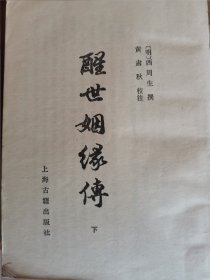 〔明〕西周生 撰
黄肅秋 校注
醒世姻緣傳
下
上海古籍出版社